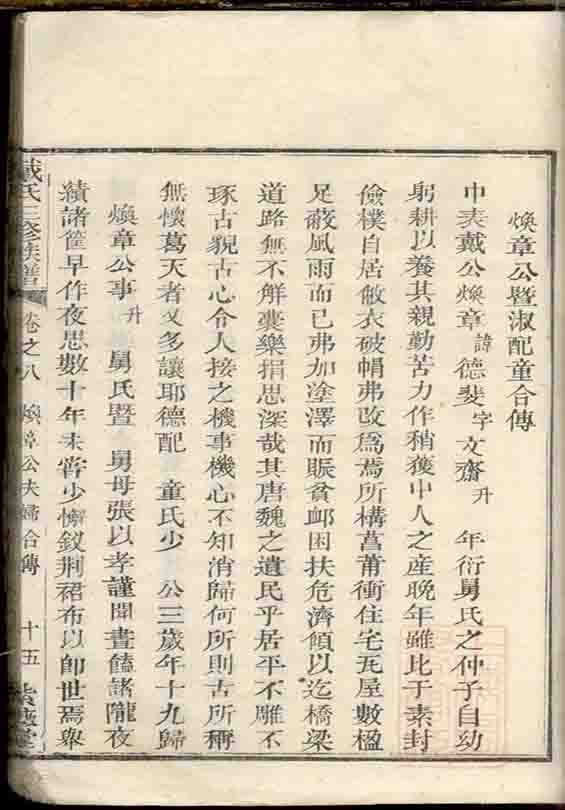 煥章公暨淑配童合傳
中表戴公煥章諱德斐字文齋升 年衍舅氏之仲子自幼
躬耕以養其親勤苦力作稍獲中人之產晚年雖比于素封
儉樸自居敝衣破帽弗改為焉所構菖莆衝住宅瓦屋數楹
足蔽風雨而已弗加塗澤而賑貧卹困扶危濟傾以迄橋梁
道路無不解囊樂捐思深哉其唐魏之遺民乎居平不雕不
琢古貌古心令人接之機事機心不知消歸何所則古所稱
無懷葛天者又多讓耶德配 童氏少 公三歲年十九歸
煥章公事升 舅氏暨 舅母張以孝謹聞晝饁諸隴夜
績諸筐早作夜思數十年未甞少懈釵荆裙布以卽世焉舉
戴氏三修族譜 卷之八 煥章公夫婦合傳 十五